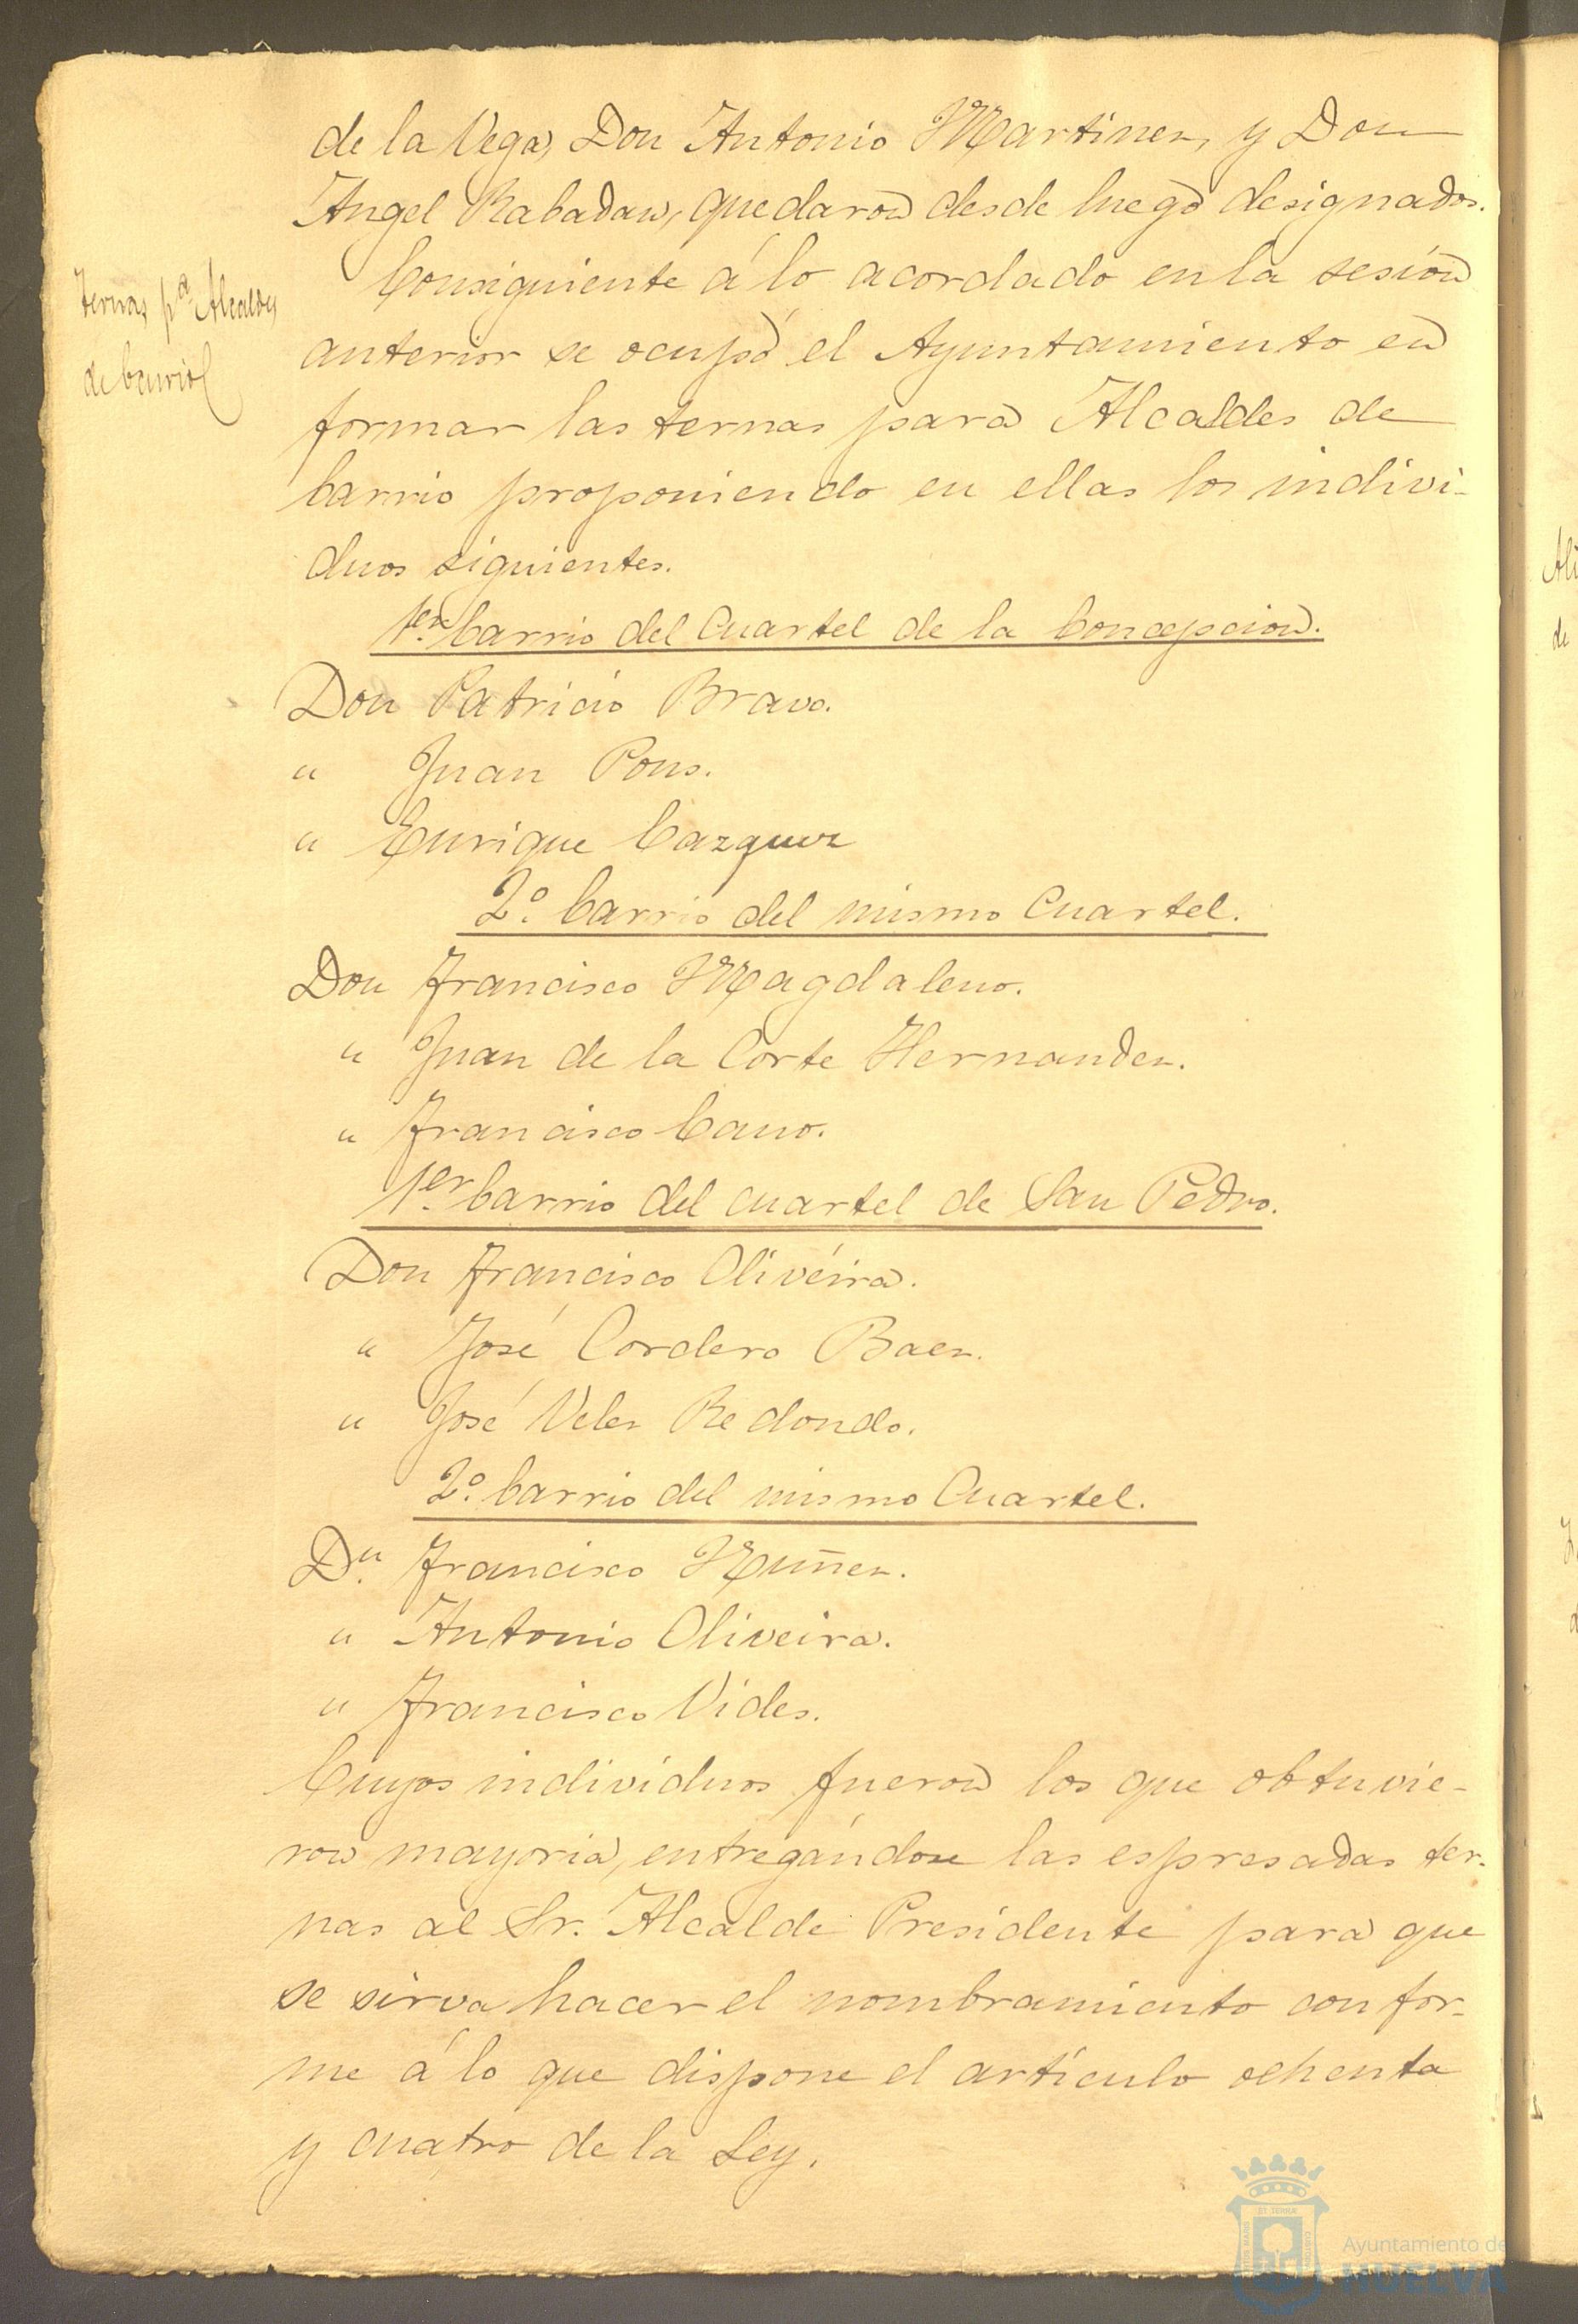 de la Vega, Don Antonio Martinez, y Don
Angel Rabadan, quedaron desde luego designados.
Ternas p.ª Alcaldes
de barrio
Consiguiente á lo acordado en la sesión
anterior se ocupó el Ayuntamiento en
formar las ternas para Alcaldes de
barrio proponiendo en ellas los indivi-
duos siguientes.
1.er barrio del Cuartel de la Concepcion.
Don Patricio Bravo.
" Juan Pons.
" Enrique Cazquez
2.º barrio del mismo Cuartel.
Don Francisco Magdaleno.
" Juan de la Corte Hernandez.
" Francisco Cano.
1.er barrio del cuartel de San Pedro.
Don Francisco Olivéira.
" José Cordero Baez.
" José Velez Redondo.
2.º barrio del mismo Cuartel.
D.n Francisco Nuñez.
" Antonio Oliveira.
" Francisco Vides.
Cuyos individuos fueron los que obtuvie-
ron mayoria, entregándose las espresadas ter-
nas al Sr. Alcalde Presidente para que
se sirva hacer el nombramiento confor-
me á lo que dispone el artículo ochenta
y cuatro de la Ley.
Ayuntamiento de
HUELVA